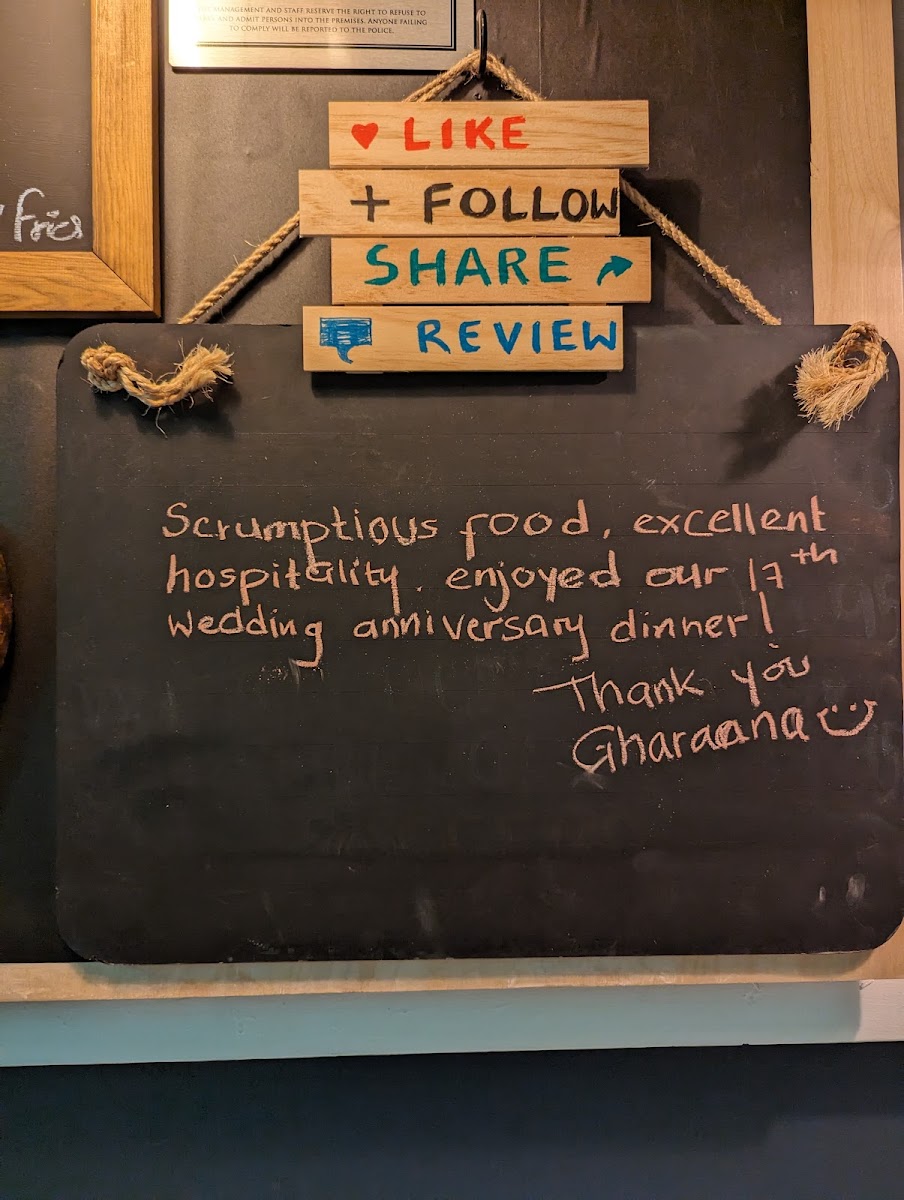 MANAGEMENT AND STAFF RESERVE THE RIGHT TO REFUSE TO
AND ADMIT PERSONS INTO THE PREMISES. ANYONE FAILING
TO COMPLY WILL BE REPORTED TO THE POLICE.
Fries
LIKE
+ FOLLOW
SHARE
REVIEW
Scrumptious food, excellent
hospitality. enjoyed our 17th
wedding anniversary dinner!
Thank you
Gharaana